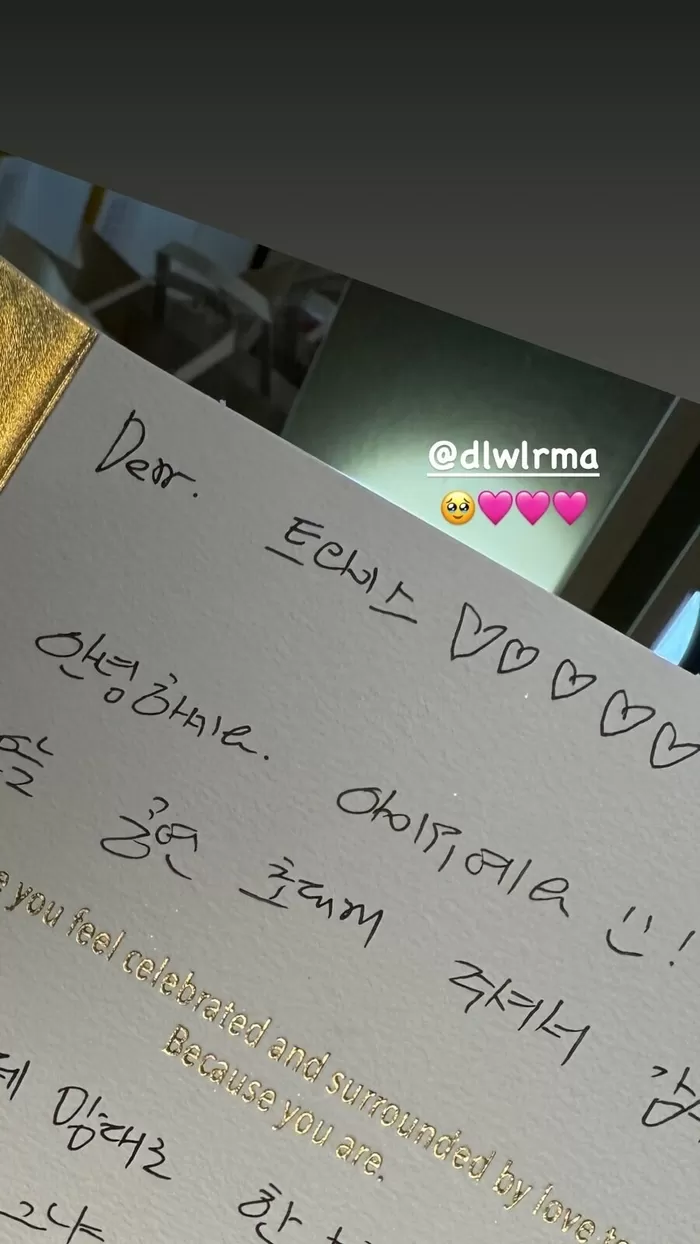 @dlwlrma
🥹💗💗💗
Dear.
트래비스 ♡♡♡♡♡
안녕하세요. 아이유예요 :)!
공연 초대해 주셔서
you feel celebrated and surrounded by love
Because you are.
맘대로 한